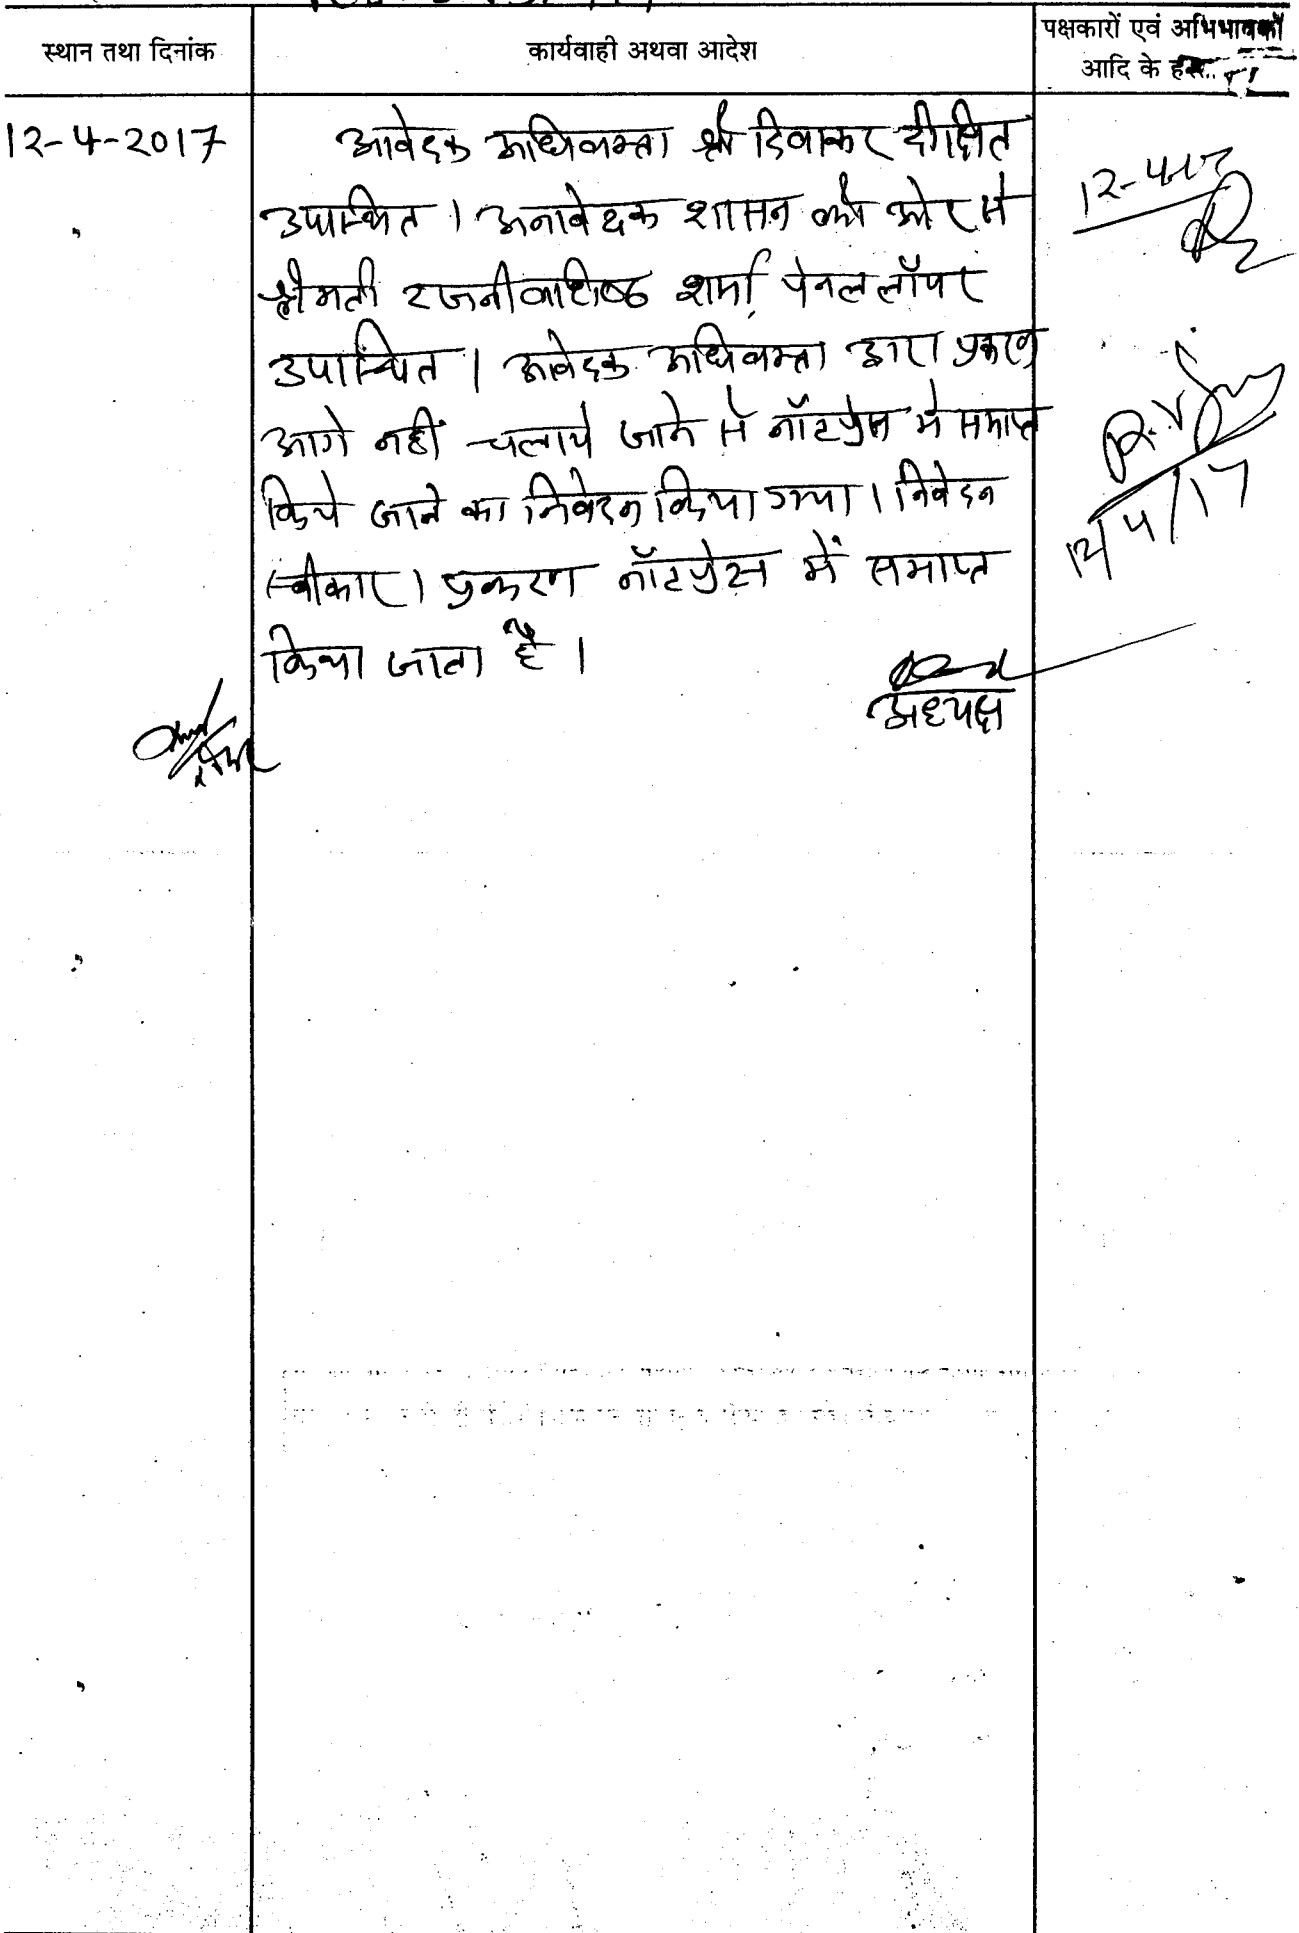 स्थान तथा दिनांक
कार्यवाही अथवा आदेश
पक्षकारों एवं अभिभावकों
आदि के
12-4-2017
आवेदक अधिवक्ता श्री दिवाकर दीक्षित
उपस्थित । अनावेदक शासन की ओर से
श्रीमती रजनी वशिष्ठ शर्मा पेनल लॉयर
उपस्थित । आवेदक अधिवक्ता द्वारा प्रकरण
आगे नहीं चलाये जाने से नॉटप्रेस में समाप्त
किये जाने का निवेदन किया गया । निवेदन
स्वीकार । प्रकरण नॉटप्रेस में समाप्त
किया जाता है ।
अध्यक्ष
12-4-17
12/4/17